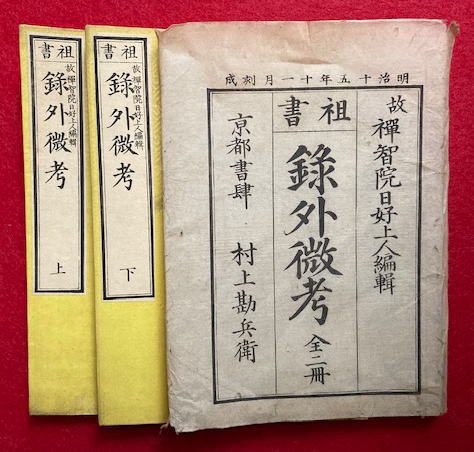 明治十五年十一月刻成
故 禪智院日好上人編輯
祖書
錄外微考 全二冊
亰都書肆 村上勘兵衛
祖書
故禪智院日好上人編輯
錄外微考 下
祖書
故禪智院日好上人編輯
錄外微考 上